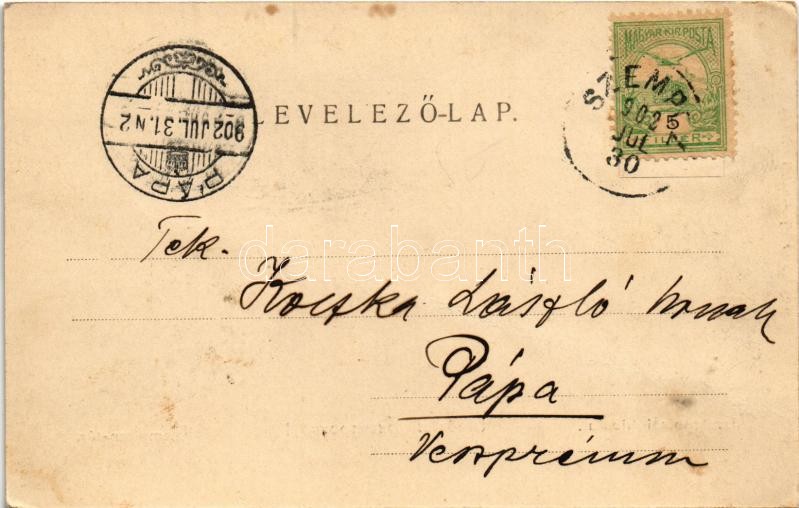 MAGYAR KIR. POSTA
5
FILLÉR
SZEMP
902
JUL
30
PÁPA
902 JUL. 31. N2
LEVELEZŐ-LAP.
Tek.
Koczka László urnak
Pápa
Veszprémm
darabanth